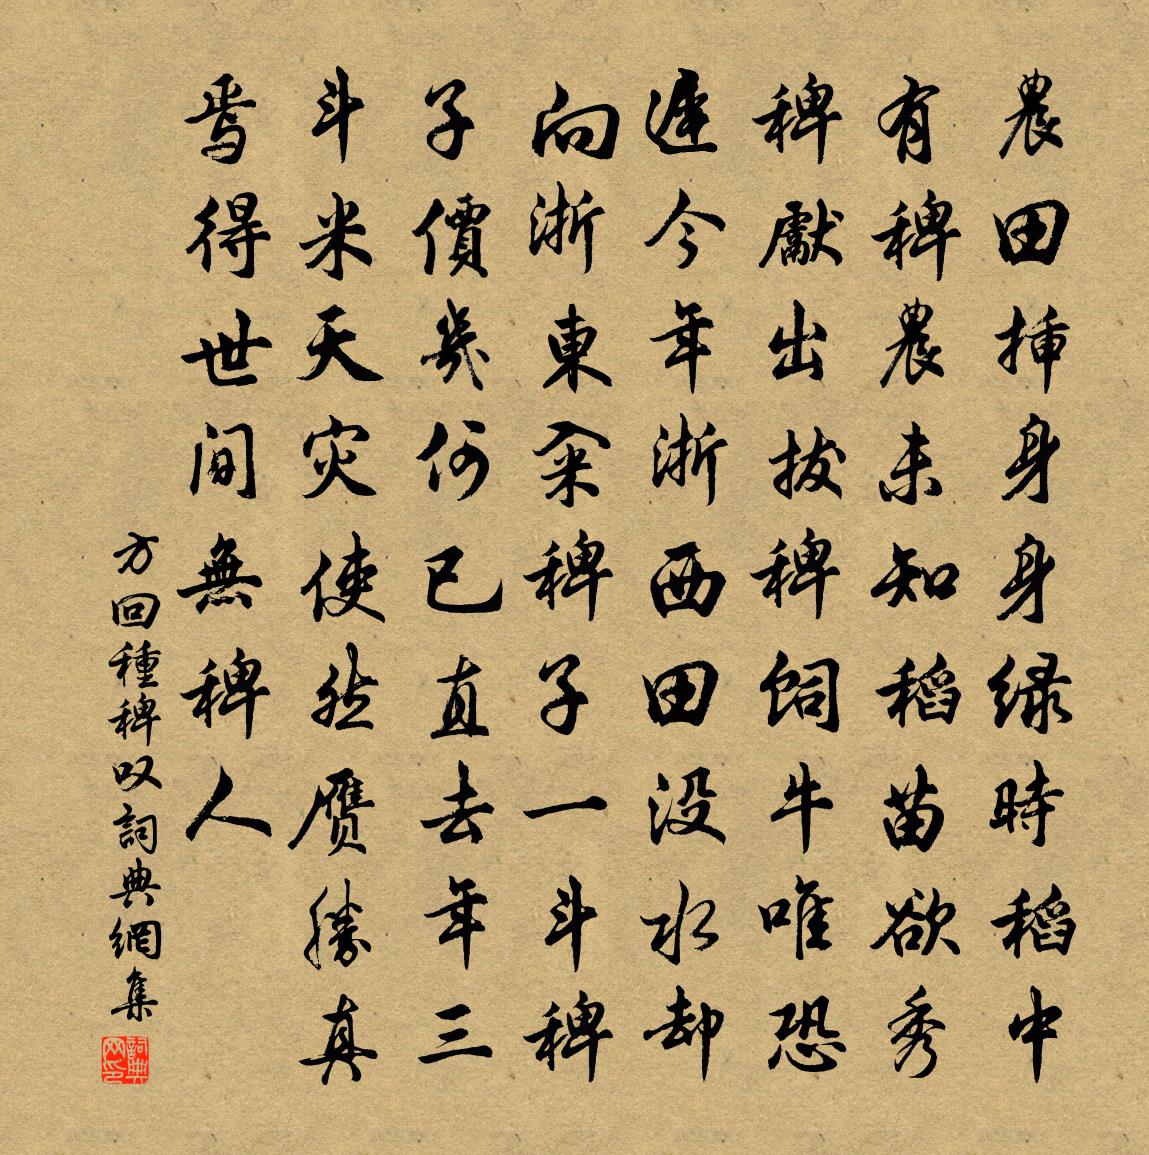 農田挿身身緑時稻中
有稗農未知稻苗欲秀
稗獻出拔稗飼牛唯恐
遲今年浙西田没水却
向浙東籴稗子一斗稗
子價幾何已直去年三
斗米天灾使然赝勝真
焉得世間無稗人
方回種稗叹詞典網集
詞典网印